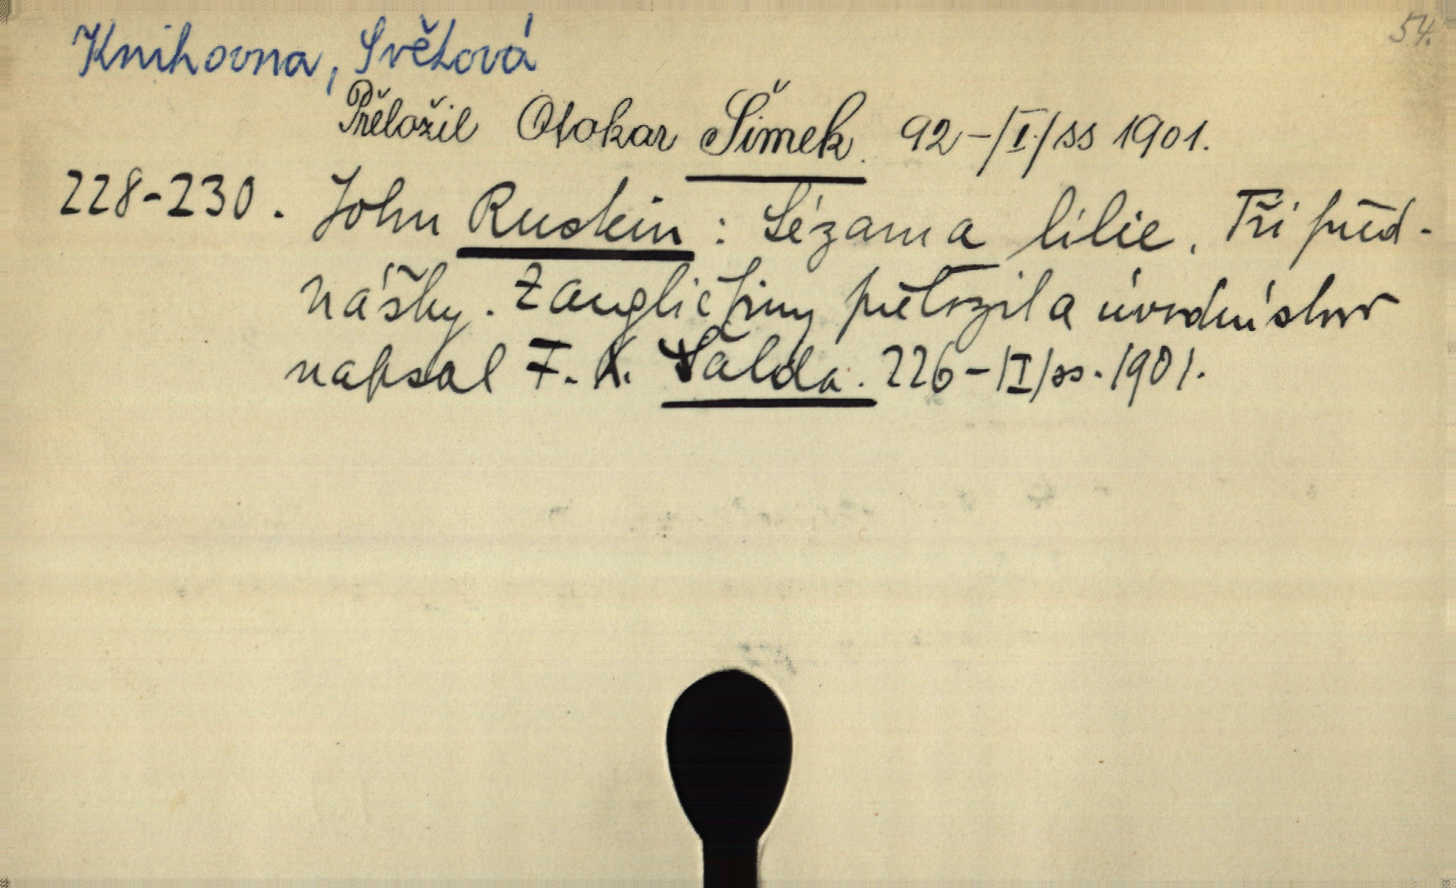 54.
Knihovna, Světová
Přeložil Otokar Šimek. 92-/I/ss 1901.
228-230. John Ruskin: Sézam a lilie. Tři před-
nášky. Z angličtiny přeložil a úvodní slovo
napsal F. X. Šalda. 226-/I/ss. 1901.